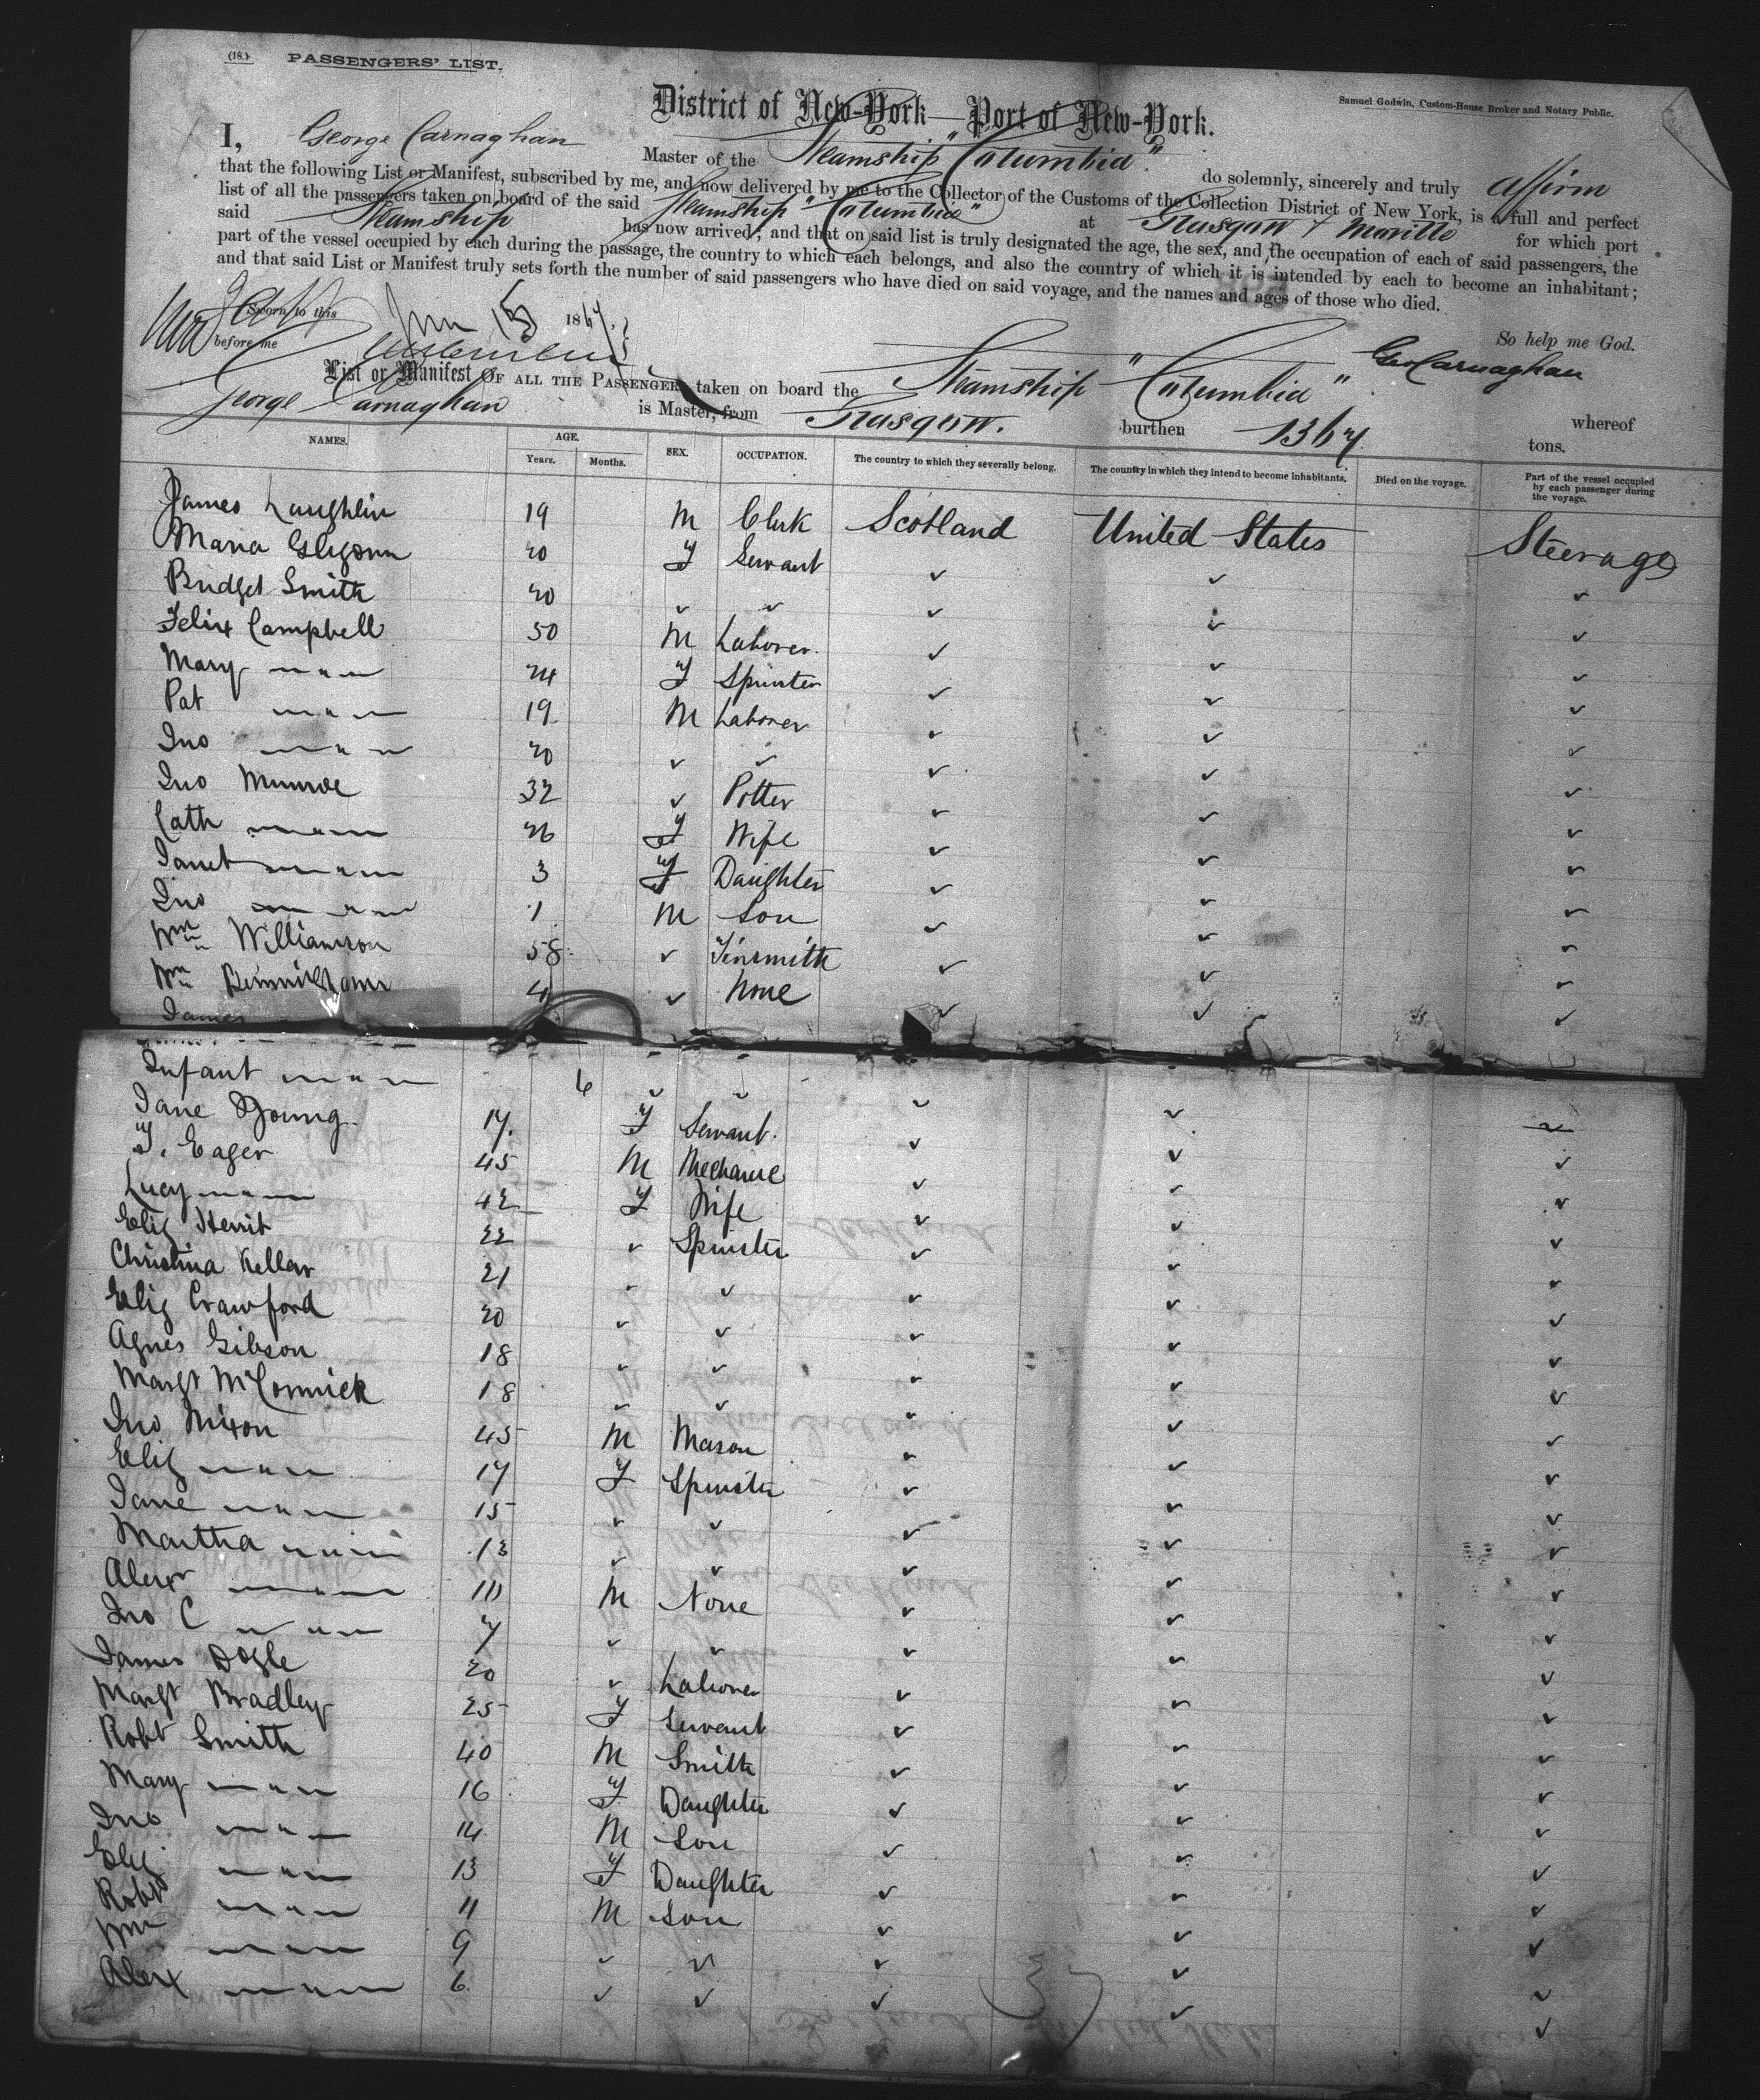 (18.) PASSENGERS' LIST.
Samuel Godwin, Custom-House Broker and Notary Public.
District of New-York—Port of New-York.
I, George Carnaghan Master of the Steamship "Columbia" do solemnly, sincerely and truly affirm
that the following List or Manifest, subscribed by me, and now delivered by me to the Collector of the Customs of the Collection District of New York, is a full and perfect
list of all the passengers taken on board of the said Steamship "Columbia" at Glasgow & Moville for which port
said Steamship has now arrived; and that on said list is truly designated the age, the sex, and the occupation of each of said passengers, the
part of the vessel occupied by each during the passage, the country to which each belongs, and also the country of which it is intended by each to become an inhabitant;
and that said List or Manifest truly sets forth the number of said passengers who have died on said voyage, and the names and ages of those who died.
So help me God.
Sworn to this 1867.
before me
Geo Carnaghan
List or Manifest OF ALL THE PASSENGERS taken on board the Steamship "Columbia" whereof
George Carnaghan is Master, from Glasgow. burthen 1367 tons.
NAMES. AGE. Years. Months. SEX. OCCUPATION. The country to which they severally belong. The country in which they intend to become inhabitants. Died on the voyage. Part of the vessel occupied by each passenger during the voyage.
James Laughlin 19 M Clerk Scotland United States Steerage
Maria 20 F Servant ✓ ✓ ✓
Bridget Smith 20 ✓ ✓ ✓ ✓ ✓
Felix Campbell 50 M Laborer ✓ ✓ ✓
Mary — " — 24 F Spinster ✓ ✓ ✓
Pat — " — 19 M Laborer ✓ ✓ ✓
Jno — " — 20 ✓ ✓ ✓ ✓ ✓
Jno Munroe 32 ✓ Potter ✓ ✓ ✓
Cath — " — 26 F Wife ✓ ✓ ✓
Janet — " — 3 F Daughter ✓ ✓ ✓
Jno — " — 1 M Son ✓ ✓ ✓
Wm Williamson 58 ✓ Tinsmith ✓ ✓ ✓
Wm 4 ✓ None ✓ ✓ ✓
James
Infant — " — 6 ✓ ✓ ✓ ✓ ✓
Jane Young 17. F Servant ✓ ✓ ✓
T. Eager 45 M Mechanic ✓ ✓ ✓
Lucy — " — 42 F Wife ✓ ✓ ✓
Eliz 22 ✓ Spinster ✓ ✓ ✓
Christina Kellar 21 ✓ ✓ ✓ ✓ ✓
Eliz Crawford 20 ✓ ✓ ✓ ✓ ✓
Agnes Gibson 18 ✓ ✓ ✓ ✓ ✓
Margt McCormick 18 ✓ ✓ ✓ ✓ ✓
Jno Nixon 45 M Mason ✓ ✓ ✓
Eliz — " — 17 F Spinster ✓ ✓ ✓
Jane — " — 15 ✓ ✓ ✓ ✓ ✓
Martha — " — 13 ✓ ✓ ✓ ✓ ✓
Alexr — " — 10 M None ✓ ✓ ✓
Jno C — " — 7 ✓ ✓ ✓ ✓ ✓
James Dogle 20 ✓ Laborer ✓ ✓ ✓
Margt Bradley 25 F Servant ✓ ✓ ✓
Robt Smith 40 M Smith ✓ ✓ ✓
Mary — " — 16 F Daughter ✓ ✓ ✓
Jno — " — 14 M Son ✓ ✓ ✓
Eliz — " — 13 F Daughter ✓ ✓ ✓
Robt — " — 11 M Son ✓ ✓ ✓
Wm — " — 9 ✓ ✓ ✓ ✓ ✓
Alexr — " — 6 ✓ ✓ ✓ ✓ ✓